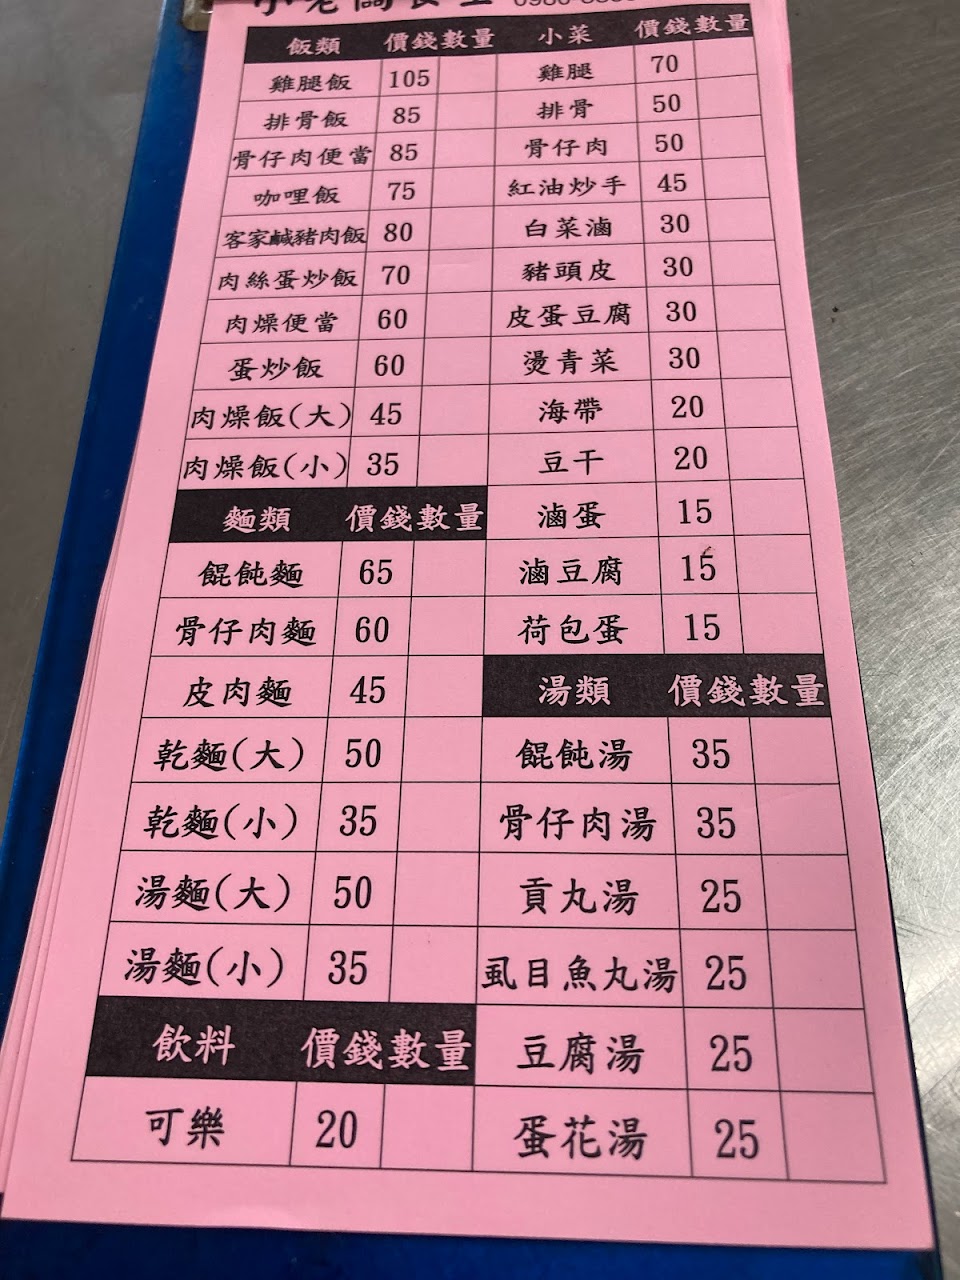 飯類 價錢 數量
雞腿飯 105
排骨飯 85
骨仔肉便當 85
咖哩飯 75
客家鹹豬肉飯 80
肉絲蛋炒飯 70
肉燥便當 60
蛋炒飯 60
肉燥飯(大) 45
肉燥飯(小) 35
麵類 價錢 數量
餛飩麵 65
骨仔肉麵 60
皮肉麵 45
乾麵(大) 50
乾麵(小) 35
湯麵(大) 50
湯麵(小) 35
飲料 價錢 數量
可樂 20
小菜 價錢 數量
雞腿 70
排骨 50
骨仔肉 50
紅油炒手 45
白菜滷 30
豬頭皮 30
皮蛋豆腐 30
燙青菜 30
海帶 20
豆干 20
滷蛋 15
滷豆腐 15
荷包蛋 15
湯類 價錢 數量
餛飩湯 35
骨仔肉湯 35
貢丸湯 25
虱目魚丸湯 25
豆腐湯 25
蛋花湯 25